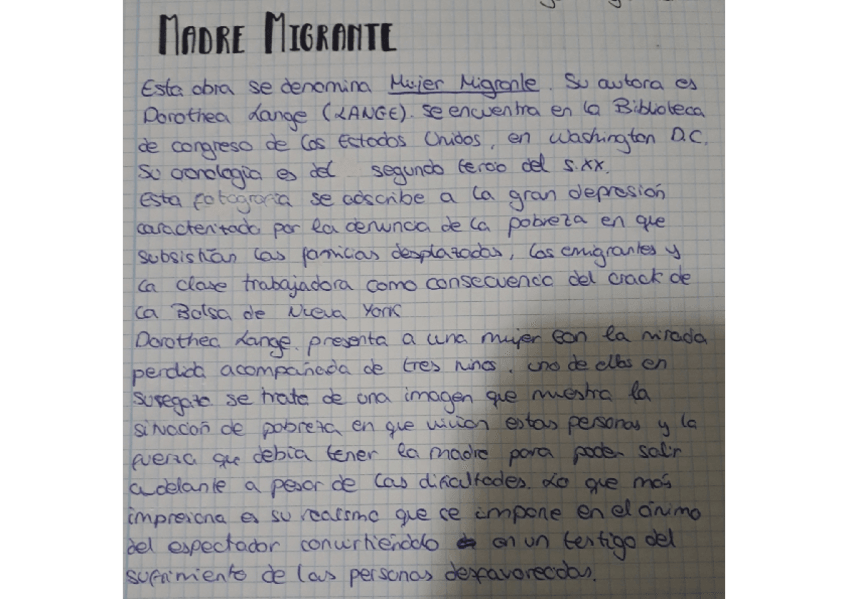 MADRE MIGRANTE
Esta obra se denomina Mujer Migrante. Su autora es
Dorothea Lange (LANGE). Se encuentra en la Biblioteca
de congreso de los Estados Unidos, en Washington D.C.
Su cronología es del segundo tercio del s.XX.
Esta fotografía se adscribe a la gran depresión
caracterizado por la denuncia de la pobreza en que
subsistían las familias desplazadas, los emigrantes y
la clase trabajadora como consecuencia del crack de
la Bolsa de Nueva York
Dorothea Lange. presenta a una mujer con la mirada
perdida acompañada de tres niños. uno de ellos en
su regazo se trata de una imagen que muestra la
situación de pobreza en que vivían estas personas y la
fuerza que debía tener la madre para poder salir
adelante a pesar de las dificultades. Lo que más
impresiona es su realismo que se impone en el ánimo
del espectador convirtiéndolo en un testigo del
sufrimiento de las personas desfavorecidas.